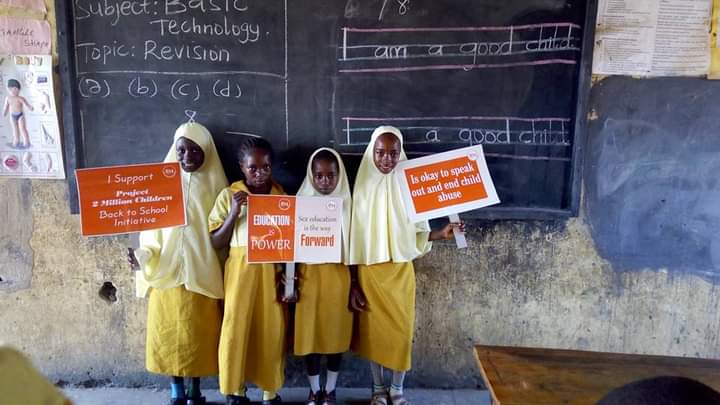 Subject: Basic
Technology.
Topic: Revision
(a) (b) (c) (d)
8
I am a good child
I a good child
I Support
Project
2 Million Children
Back to School
Initiative
EDUCATION
is
POWER
Sex education
is the way
Forward
Is okay to speak
out and end child
abuse